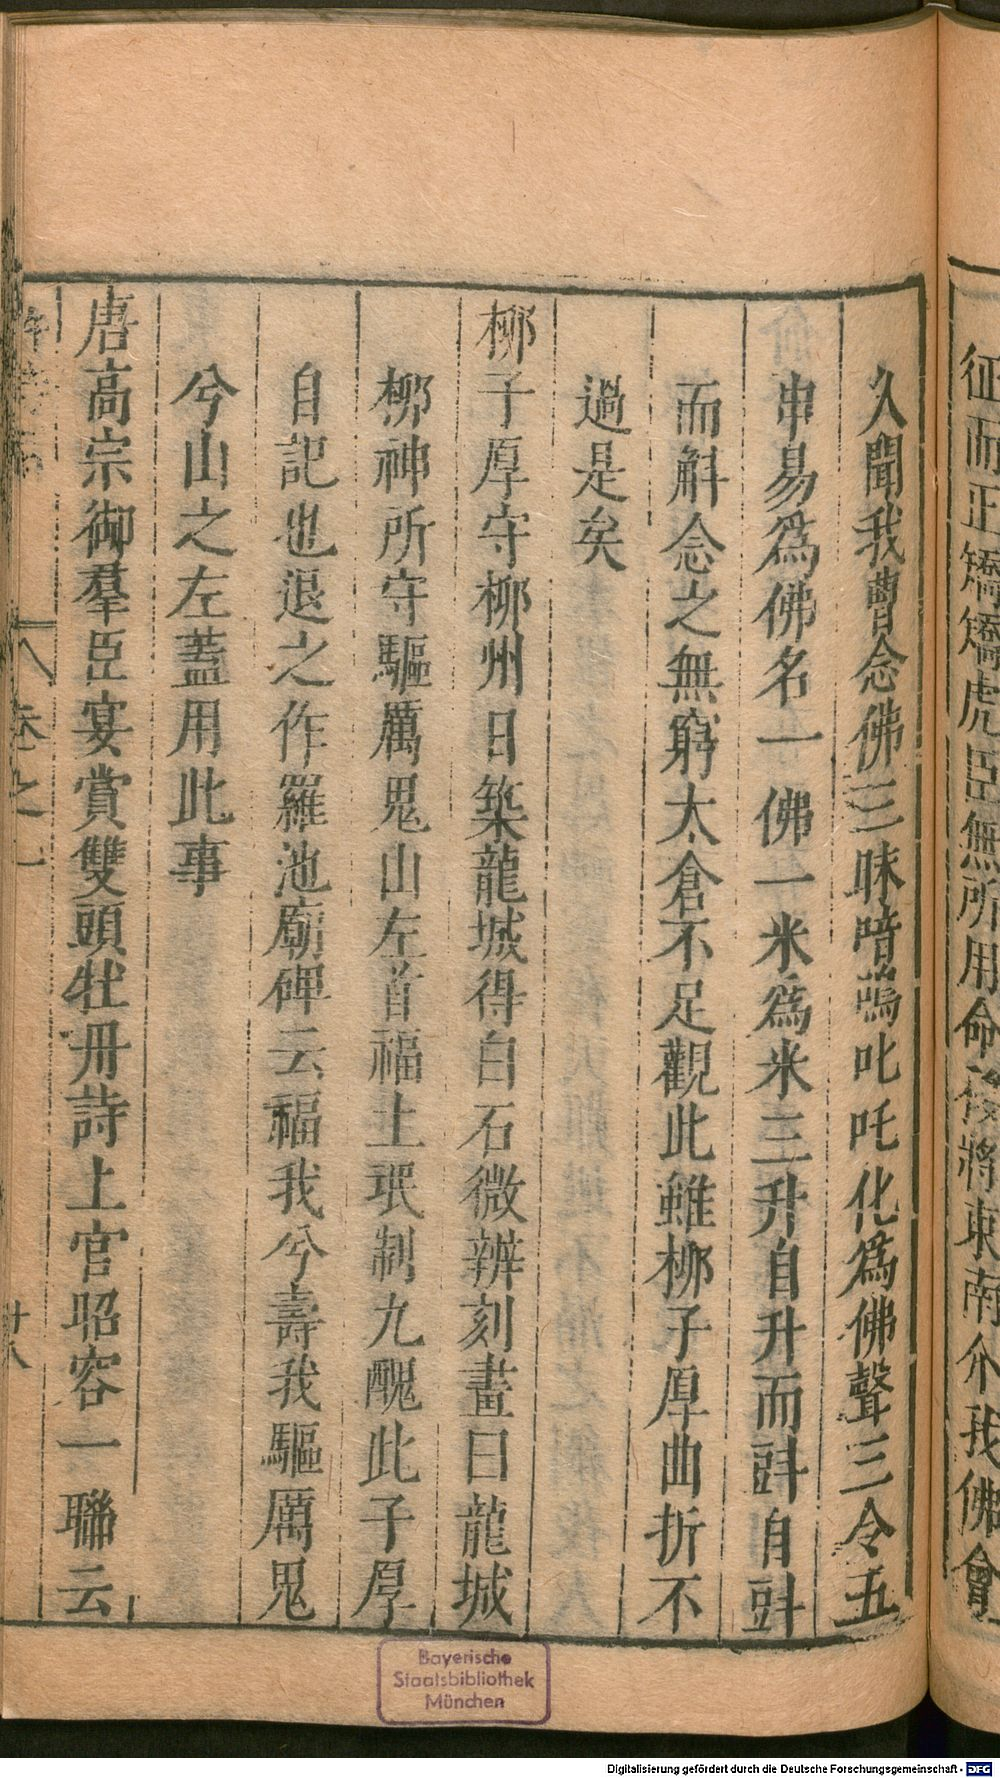 征而正矯矯虎臣無所用命後將東南介我佛會
久聞我曹念佛三昧喑嗚叱吒化爲佛聲三令五
串易爲佛名一佛一米爲米三升自升而㪷自㪷
而斛念之無窮太倉不足觀此雖栁子厚曲折不
過是矣
栁子厚守栁州日築龍城得白石微辨刻畫曰龍城
栁神所守驅厲鬼山左首福土氓制九醜此子厚
自記也退之作羅池廟碑云福我兮壽我驅厲鬼
兮山之左蓋用此事
唐高宗御羣臣宴賞雙頭牡丹詩上官昭容一聯云
卷之
廿八
Bayerische
Staatsbibliothek
München
Digitalisierung gefördert durch die Deutsche Forschungsgemeinschaft - DFG